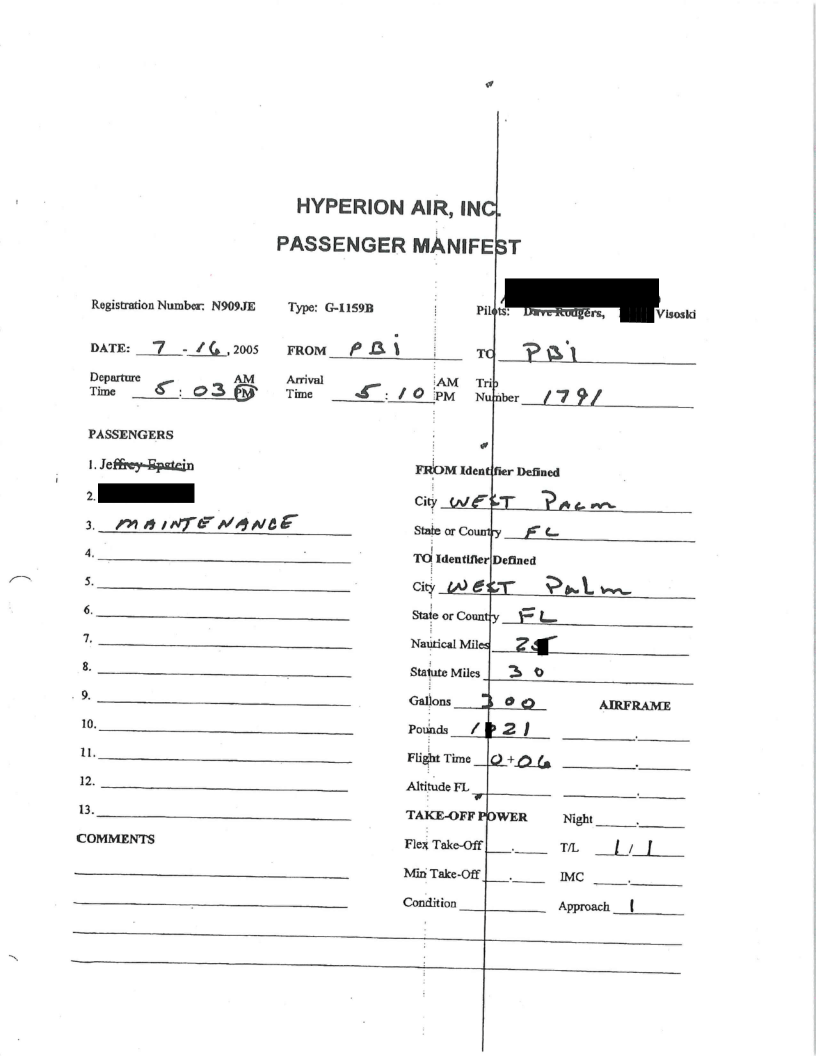 HYPERION AIR, INC.
PASSENGER MANIFEST
Registration Number: N909JE Type: G-1159B Pilots: Dave Rodgers, Visoski
DATE: 7 - 16, 2005 FROM PBi TO PBi
Departure Time 5:03 AM PM Arrival Time 5:10 AM PM Trip Number 1791
PASSENGERS
1. Jeffrey Epstein
FROM Identifier Defined
2.
City WEST PALM
3. MAINTENANCE
State or Country FL
4.
TO Identifier Defined
5.
City WEST Palm
6.
State or Country FL
7.
Nautical Miles 25
8.
Statute Miles 30
9.
Gallons 300 AIRFRAME
10.
Pounds 1 21
11.
Flight Time 0+06
12.
Altitude FL
13.
TAKE-OFF POWER Night
COMMENTS
Flex Take-Off T/L 1/1
Min Take-Off IMC
Condition Approach 1